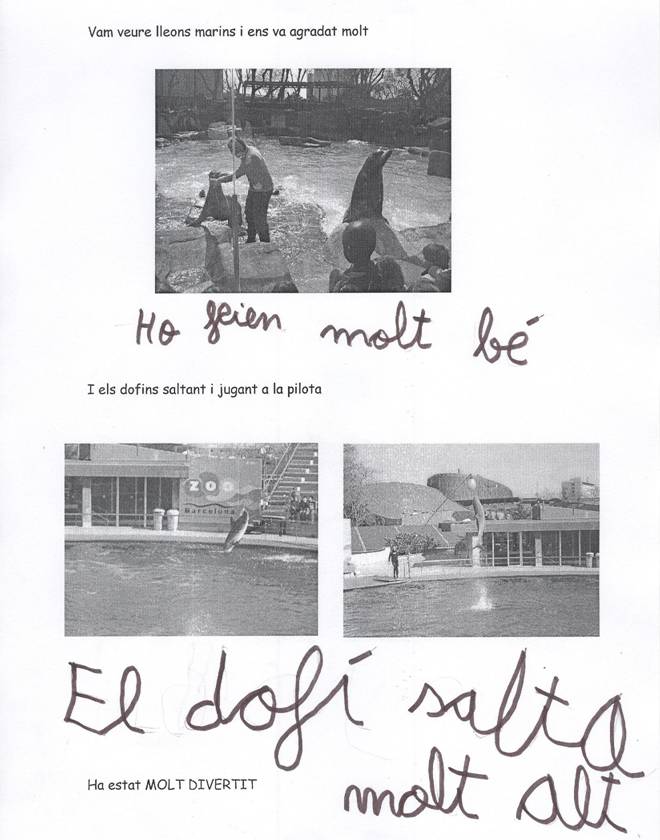 Vam veure lleons marins i ens va agradat molt
Ho feien molt bé
I els dofins saltant i jugant a la pilota
zoo
Barcelona
El dofí salta
molt alt
Ha estat MOLT DIVERTIT